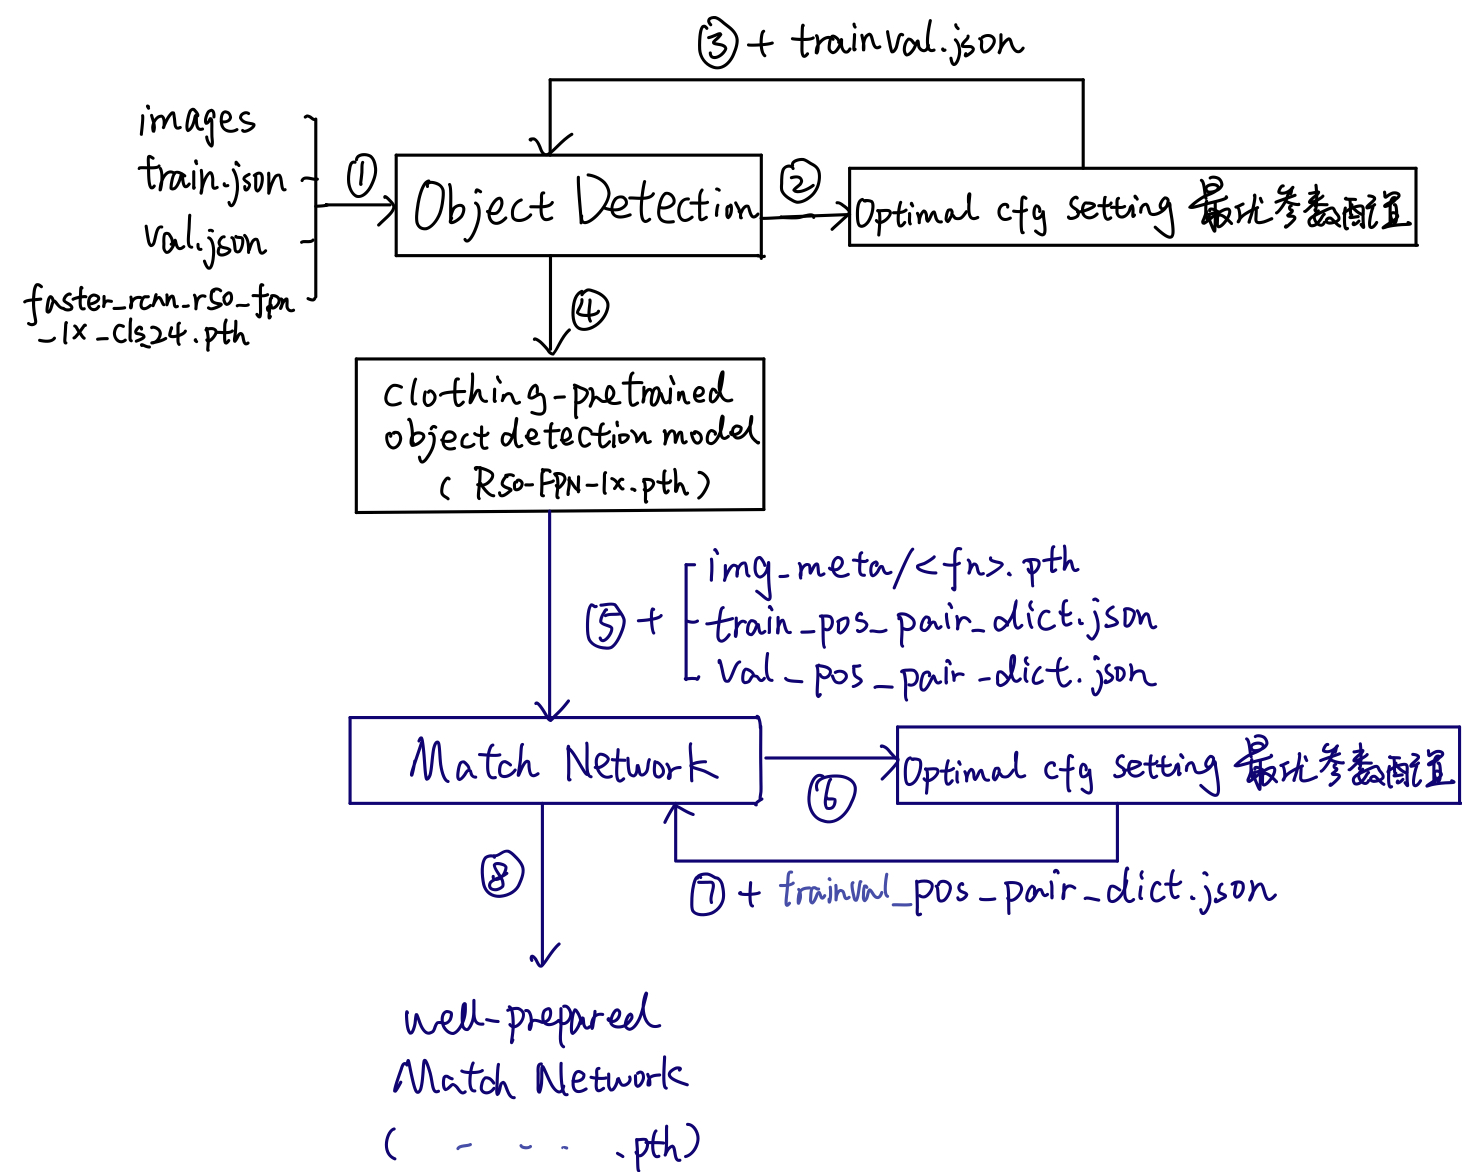 ③ + trainval.json
images
train.json
val.json
faster_rcnn_r50_fpn
_1x_cls24.pth
①
Object Detection
②
Optimal cfg setting 最优参数配置
④
clothing-pretrained
object detection model
( R50-FPN-1x.pth )
⑤ +
img_meta/<fn>.pth
train_pos_pair_dict.json
val_pos_pair_dict.json
Match Network
⑥
Optimal cfg setting 最优参数配置
⑦ + trainval_pos_pair_dict.json
⑧
well-prepared
Match Network
( - - - .pth)